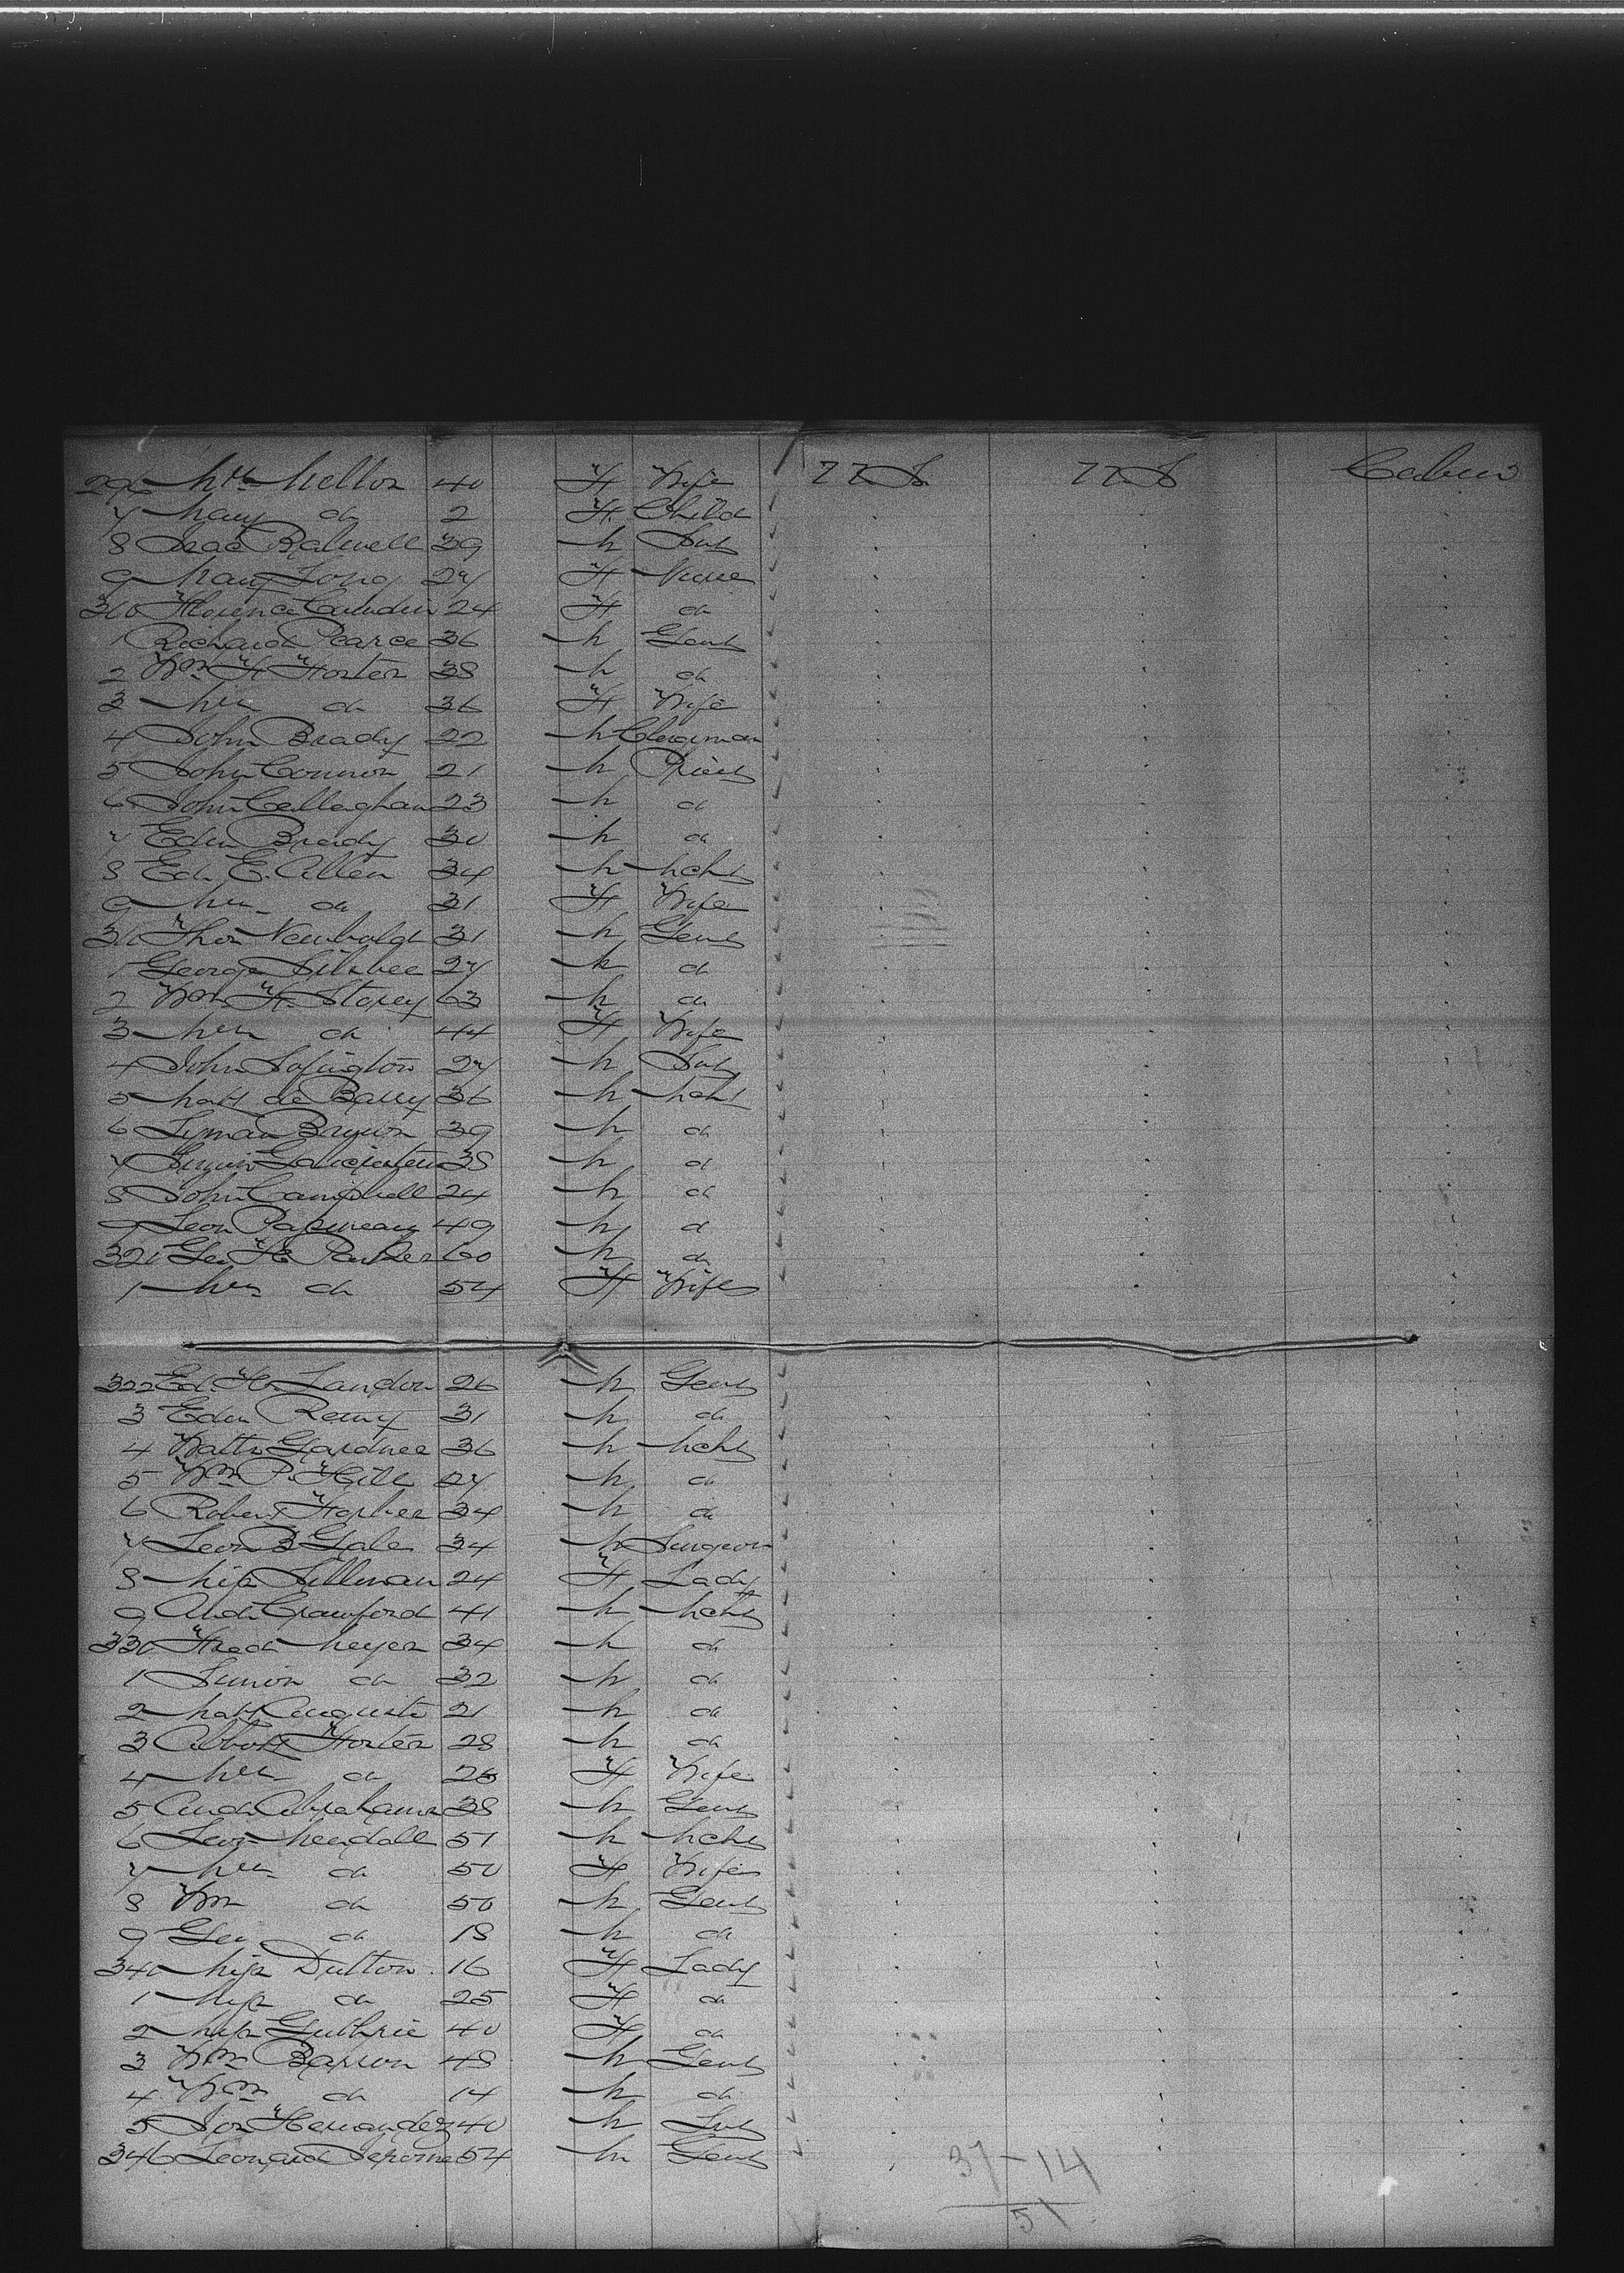 296 Mrs Mellor 40 F Wife U S U S Cabin
7 Mary do 2 F Child
8 Isaac Balwell 39 M
9 Mary Long 27 F Nurse
300 Florence 24 F do
1 Richard Pearce 36 M Gent
2 Wm H Foster 38 M do
3 Mrs do 36 F Wife
4 John Brady 22 M Clergman
5 John Connor 21 M Priest
6 John Callaghan 23 M do
7 Edw Brady 30 M do
8 Ed. E. Allen 34 M Mcht
9 Mrs do 31 F Wife
310 Thos Newbold 31 M Gent
1 George Silsbee 27 M do
2 Wm H. Storey 63 M do
3 Mrs do 44 F Wife
4 John 27 M
5 Matt de Barry 36 M Mcht
6 Lyman 39 M do
7 38 M do
8 John Campbell 24 M do
9 Leon Papineau 49 M do
320 Geo H Parker 60 M do
1 Mrs do 54 F Wife
322 Ed. H. Landon 26 M Gent
3 Edw Remy 31 M do
4 Walter Gardner 36 M Mcht
5 Wm P. Hill 27 M do
6 Robert 34 M do
7 Leon B Gale 34 M Surgeon
8 Miss Silliman 24 F Lady
9 And Crawford 41 M Mcht
330 Fred Meyer 34 M do
1 Simon do 32 M do
2 Matt Auguste 21 M do
3 Abbott Foster 28 M do
4 Mrs do 26 F Wife
5 And Abrahams 38 M Gent
6 Levi Mendall 51 M Mcht
7 Mrs do 50 F Wife
8 Wm do 50 M Gent
9 Geo do 18 M do
340 Miss Dutton 16 F Lady
1 Miss do 25 F do
2 Miss Guthrie 40 F do
3 Wm Barron 48 M Gent
4 Wm do 14 M do
5 Jos Hernandez 40 M
346 Leonard Jerome 54 M Gent
37-14
51